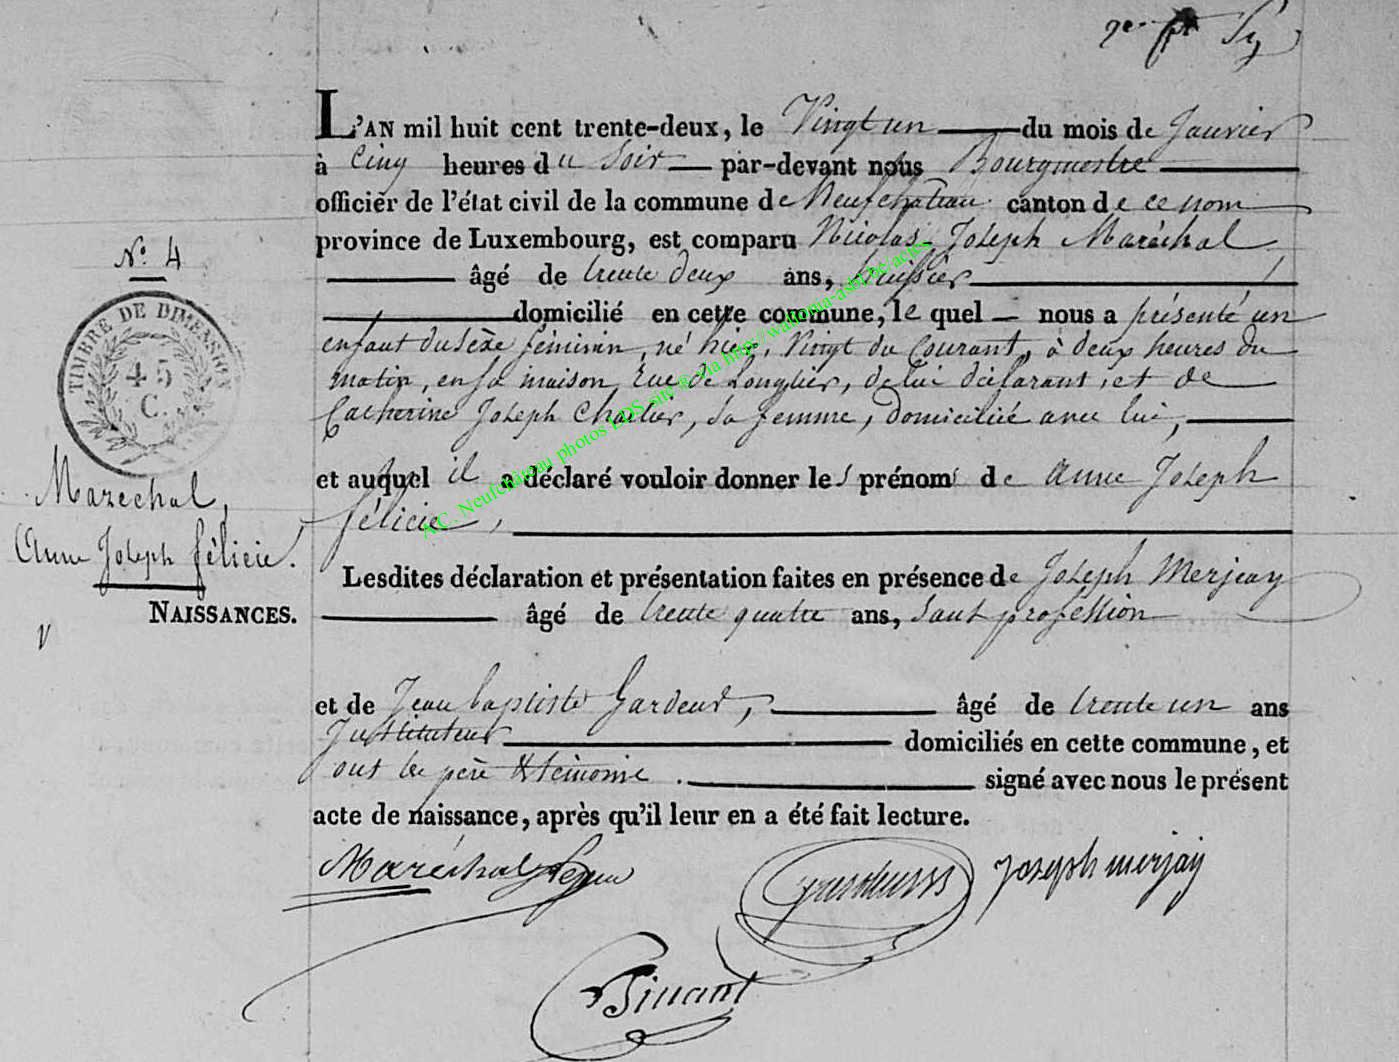 L'AN mil huit cent trente-deux, le Vingt un du mois de Janvier
à Cinq heures du Soir par-devant nous Bourgmestre
officier de l'état civil de la commune de Neufchateau canton de ce nom
province de Luxembourg, est comparu Nicolas Joseph Maréchal
N.° 4
âgé de trente deux ans, huissier
domicilié en cette commune, le quel nous a présenté un
enfant du sèxe féminin, né hier, Vingt du Courant, à deux heures du
TIMBRE DE DIMENSION
45
C.
matin, en sa maison, rue de Longlier, de lui déclarant, et de
Catherine Joseph Charlier, sa femme, domiciliée avec lui,
et auquel il a déclaré vouloir donner les prénoms de Anne Joseph
félicie,
Marechal,
Anne Joseph félicie.
NAISSANCES.
Lesdites déclaration et présentation faites en présence de Joseph Merjeay
âgé de trente quatre ans, sans profession
et de Jean baptiste Gardeur, âgé de trente un ans
Instituteur domiciliés en cette commune, et
ont les père & témoins signé avec nous le présent
acte de naissance, après qu'il leur en a été fait lecture.
Maréchal
Joseph merjay
Dinant
A.C. Neufchâteau photos LDS sur @ via http://wallonia-asbl.be/acks